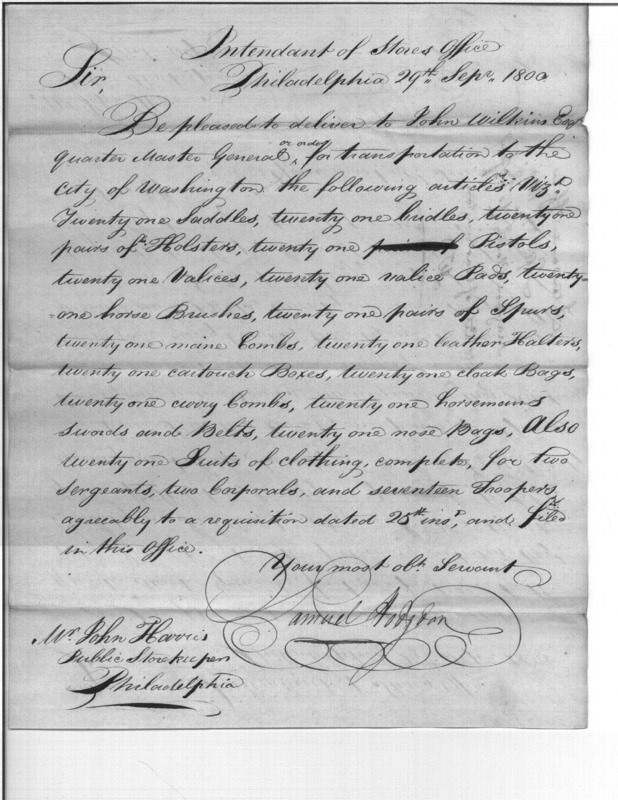 Intendant of Stores Office
Sir, Philadelphia 29th Sepr. 1800
Be pleased to deliver to John Wilkins Esqr
quarter Master General, or order, for transportation to the
city of Washington the following articles Vizt.
Twenty one Saddles, twenty one bridles, twenty one
pairs of Holsters, twenty one Pistols,
twenty one Valices, twenty one valice Pads, twenty-
=one horse Brushes, twenty one pairs of Spurs,
twenty one maine Combs, twenty one leather Halters,
twenty one cartouch Boxes, twenty one cloak Bags,
twenty one curry Combs, twenty one horsemans
swords and Belts, twenty one nose Bags, Also
twenty one Suits of clothing, complete, for two
Sergeants, two Corporals, and seventeen Troopers,
agreeably to a requisition dated 25th inst, and filed
in this Office.
Your most obt. Servant
Samuel Hodgdon
Mr. John Harris
Public Storekeeper
Philadelphia